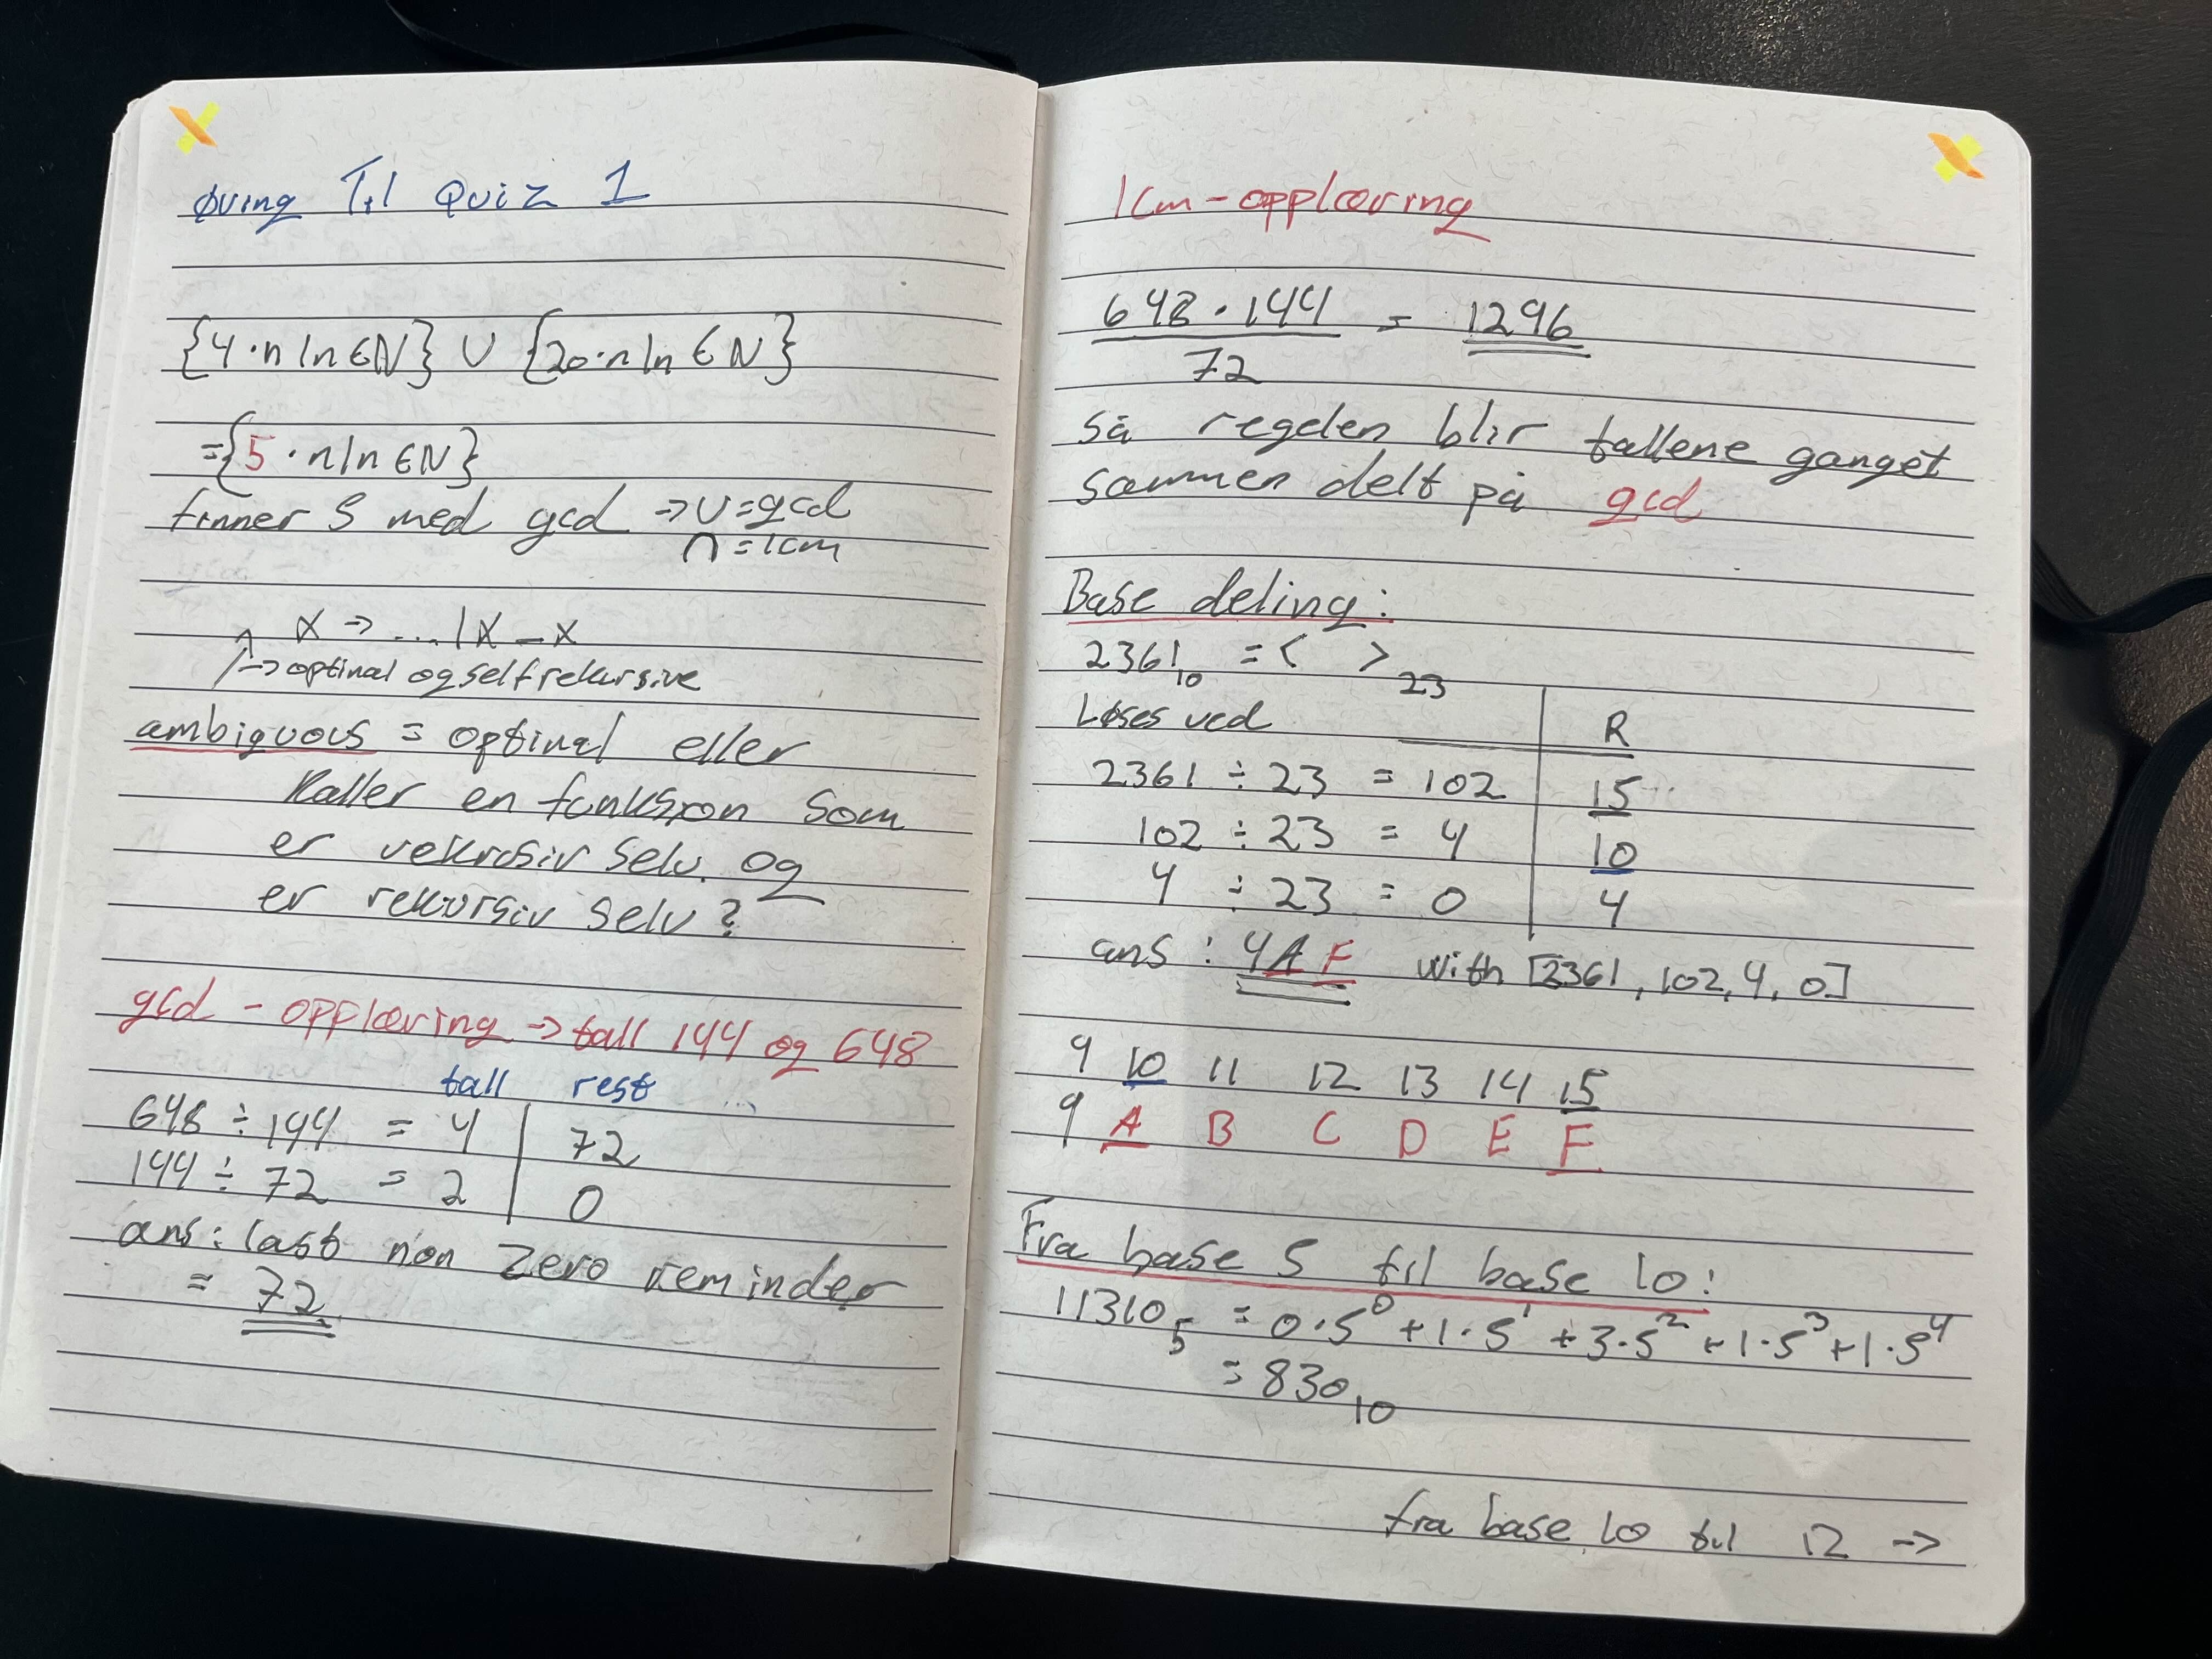 øving Til Quiz 1
{4·n|n∈N} ∪ {20·n|n∈N}
={5·n|n∈N}
finner 5 med gcd → ∪=gcd
∩=lcm
X → ...|X – X
↑→ optinal og self rekursive
ambiguous = optinal eller
Kaller en funksjon som
er rekrusiv selv. og
er rekursiv selv?
gcd - opplæring → tall 144 og 648
tall rest
648 ÷ 144 = 4 | 72
144 ÷ 72 = 2 | 0
ans: last non Zero reminder
= 72
lcm - opplæring
648 · 144 = 1296
72
så regelen blir tallene ganget
sammen delt på gcd
Base deling:
2361₁₀ = < >₂₃
Løses ved R
2361 ÷ 23 = 102 | 15
102 ÷ 23 = 4 | 10
4 ÷ 23 = 0 | 4
ans: 4AF with [2361, 102, 4, 0]
9 10 11 12 13 14 15
9 A B C D E F
Fra base 5 til base 10:
11310₅ = 0·5⁰ + 1·5¹ + 3·5² + 1·5³ + 1·5⁴
= 830₁₀
fra base 10 til 12 →